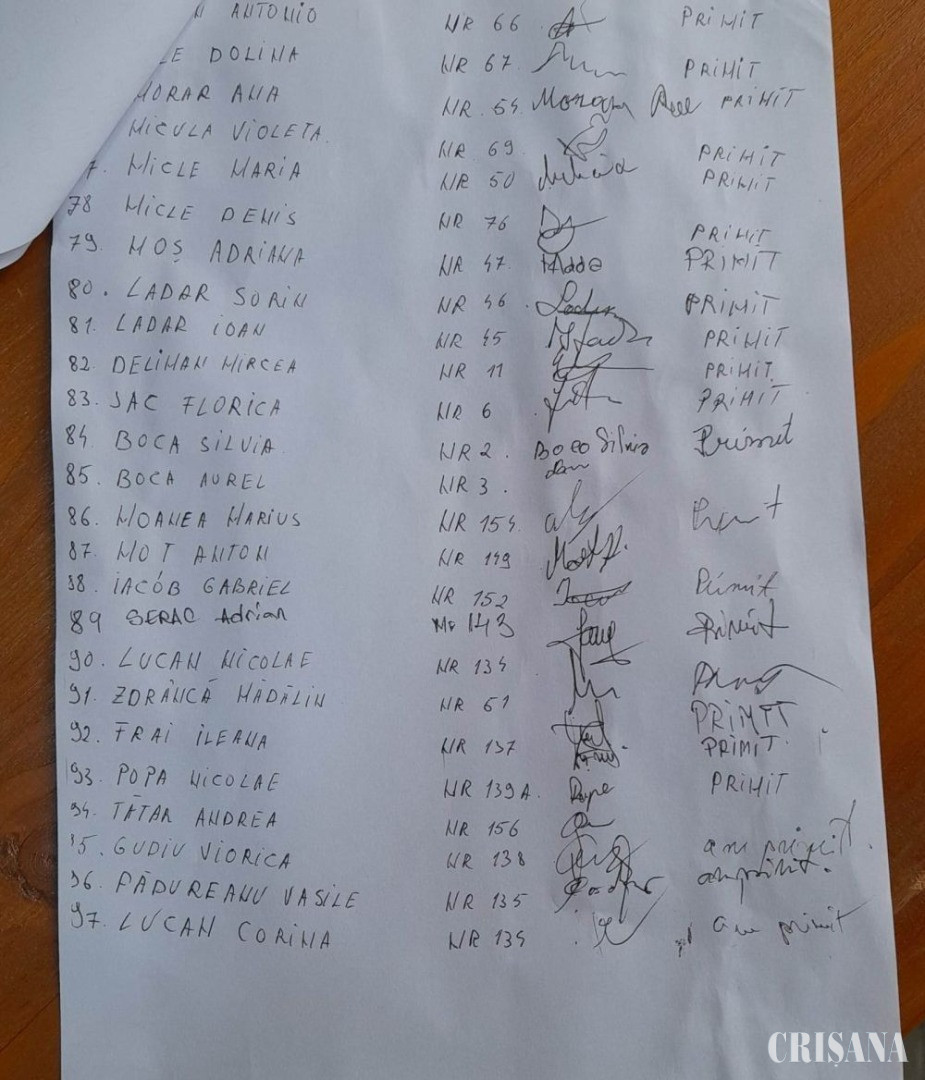 ANTONIO NR 66 PRIMIT
LE DOLINA NR 67. PRIMIT
MORAR ANA NR. 54. PRIMIT
MICULA VIOLETA. NR 69 PRIMIT
7. MICLE MARIA NR 50 PRIMIT
78 MICLE DENIS NR 76 PRIMIT
79. MOȘ ADRIANA NR 47. PRIMIT
80. LADAR SORIN NR 46. PRIMIT
81. LADAR IOAN NR 45 PRIMIT
82. DELIMAN MIRCEA NR 11 PRIMIT
83. JAC FLORICA NR 6 PRIMIT
84. BOCA SILVIA NR 2. Boca Silvia Primit
85. BOCA AUREL NR 3.
86. MOANEA MARIUS NR 154.
87. MOT ANTON NR 149
88. IACÓB GABRIEL NR 152 Primit
89 SERAC Adrian Nr 143 PRIMIT
90. LUCAN NICOLAE NR 134
91. ZDRÂNCĂ MĂDĂLIN NR 61 PRIMIT
92. FRAI ILEANA NR 137 PRIMIT.
93. POPA NICOLAE NR 139A. Popa PRIMIT
94. TĂTAR ANDREA NR 156
95. GUDIU VIORICA NR 138 am primit.
96. PĂDUREANU VASILE NR 135 am primit.
97. LUCAN CORINA NR 134 am primit
CRIȘANA